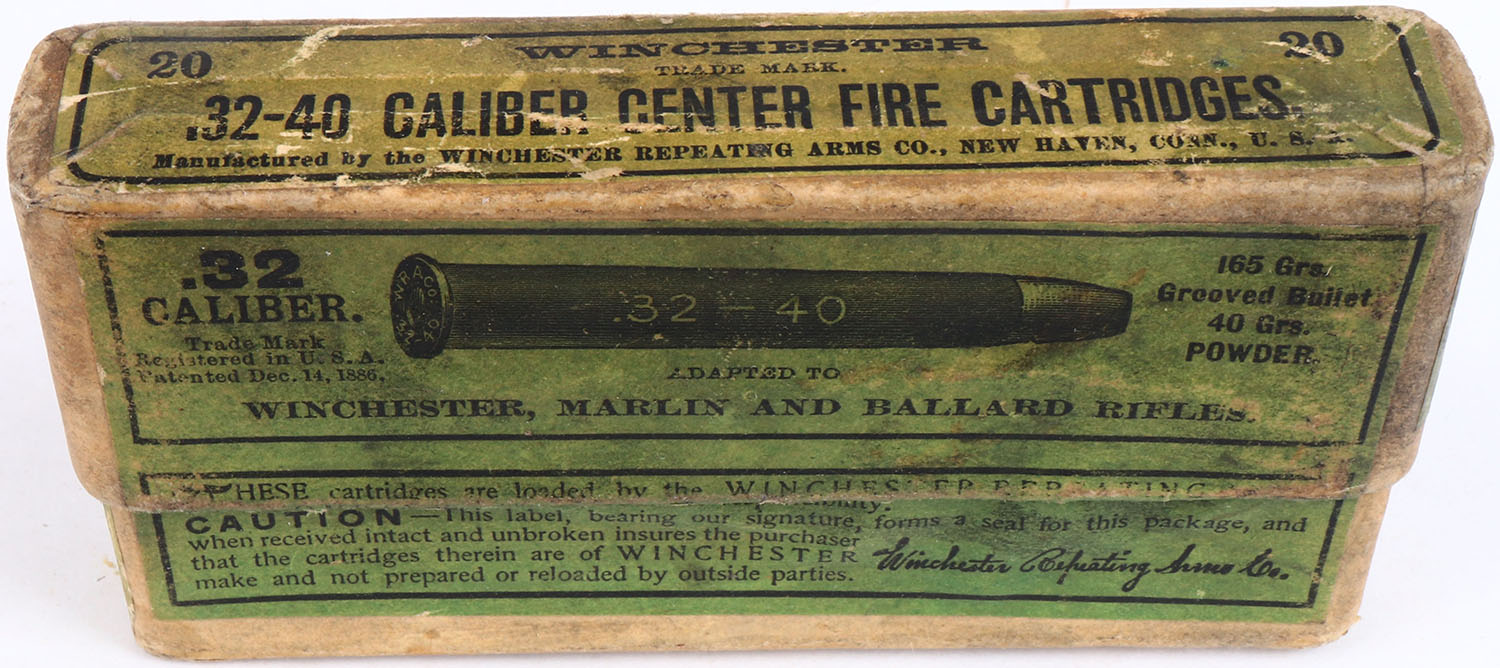 20 WINCHESTER 20
TRADE MARK.
.32-40 CALIBER CENTER FIRE CARTRIDGES.
Manufactured by the WINCHESTER REPEATING ARMS CO., NEW HAVEN, CONN., U. S. A.
.32
CALIBER.
Trade Mark
Registered in U. S. A.
Patented Dec. 14, 1886.
W.R.A.CO.
.32-40
165 Grs.
Grooved Bullet
40 Grs.
POWDER.
ADAPTED TO
WINCHESTER, MARLIN AND BALLARD RIFLES.
THESE cartridges are loaded by the WINCHESTER REPEATING
CAUTION—This label, bearing our signature, forms a seal for this package, and
when received intact and unbroken insures the purchaser
that the cartridges therein are of WINCHESTER
make and not prepared or reloaded by outside parties.
Winchester Repeating Arms Co.